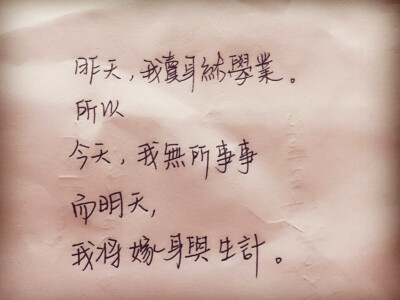 昨天，我賣身給學業。
所以
今天，我無所事事
而明天，
我將嫁身與生計。